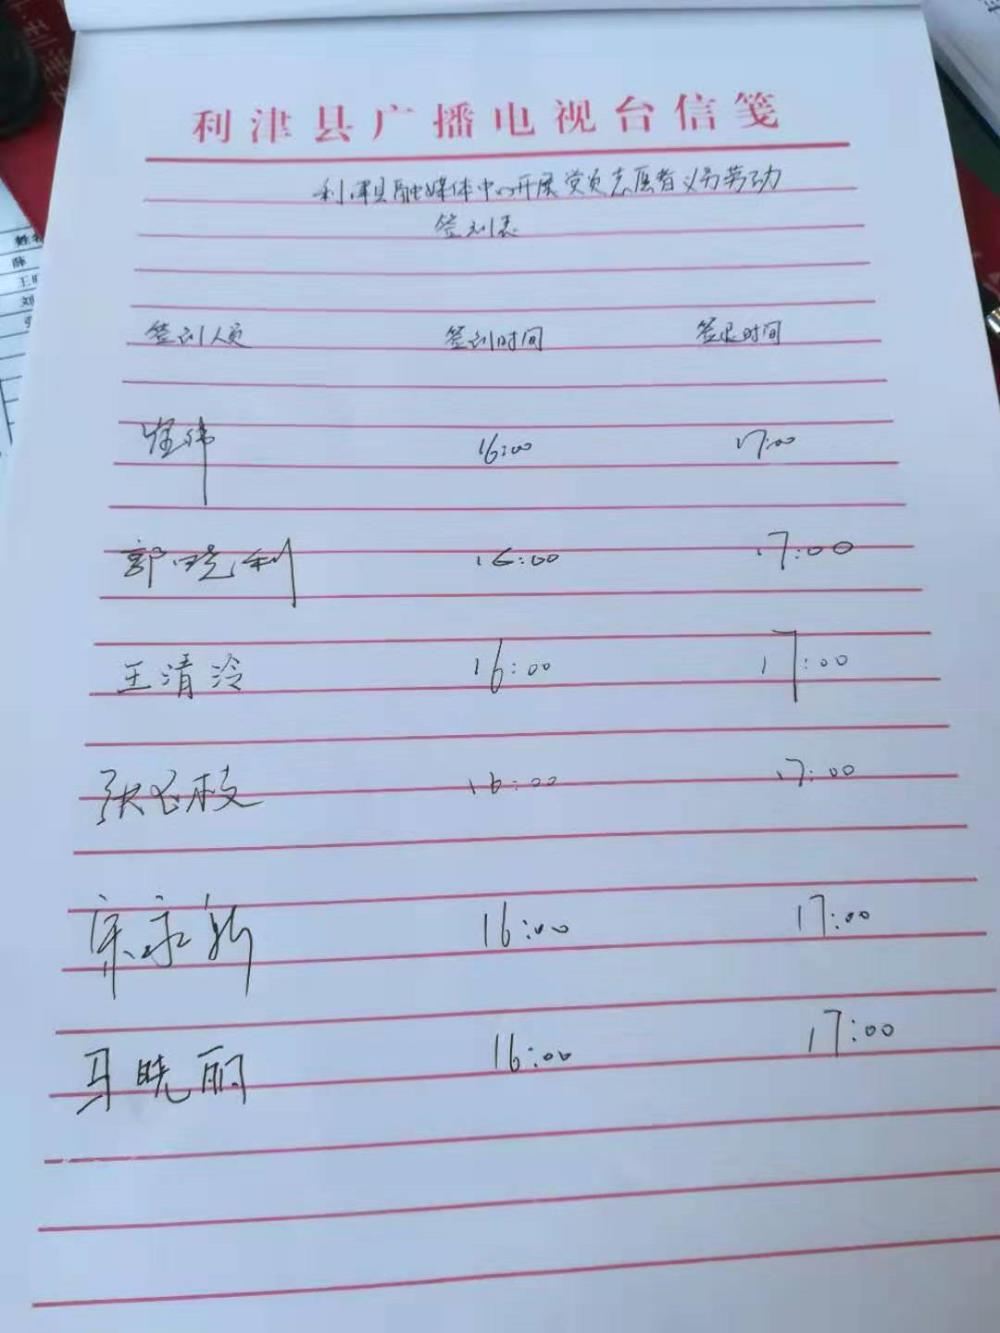 利津县广播电视台信笺
利津县融媒体中心开展党员志愿者义务劳动
签到表
签到人员 签到时间 签退时间
崔伟 16:00 17:00
郭晓利 16:00 17:00
王清泠 16:00 17:00
张爱枝 16:00 17:00
宋永新 16:00 17:00
马晓丽 16:00 17:00
姓名
薛
王
刘